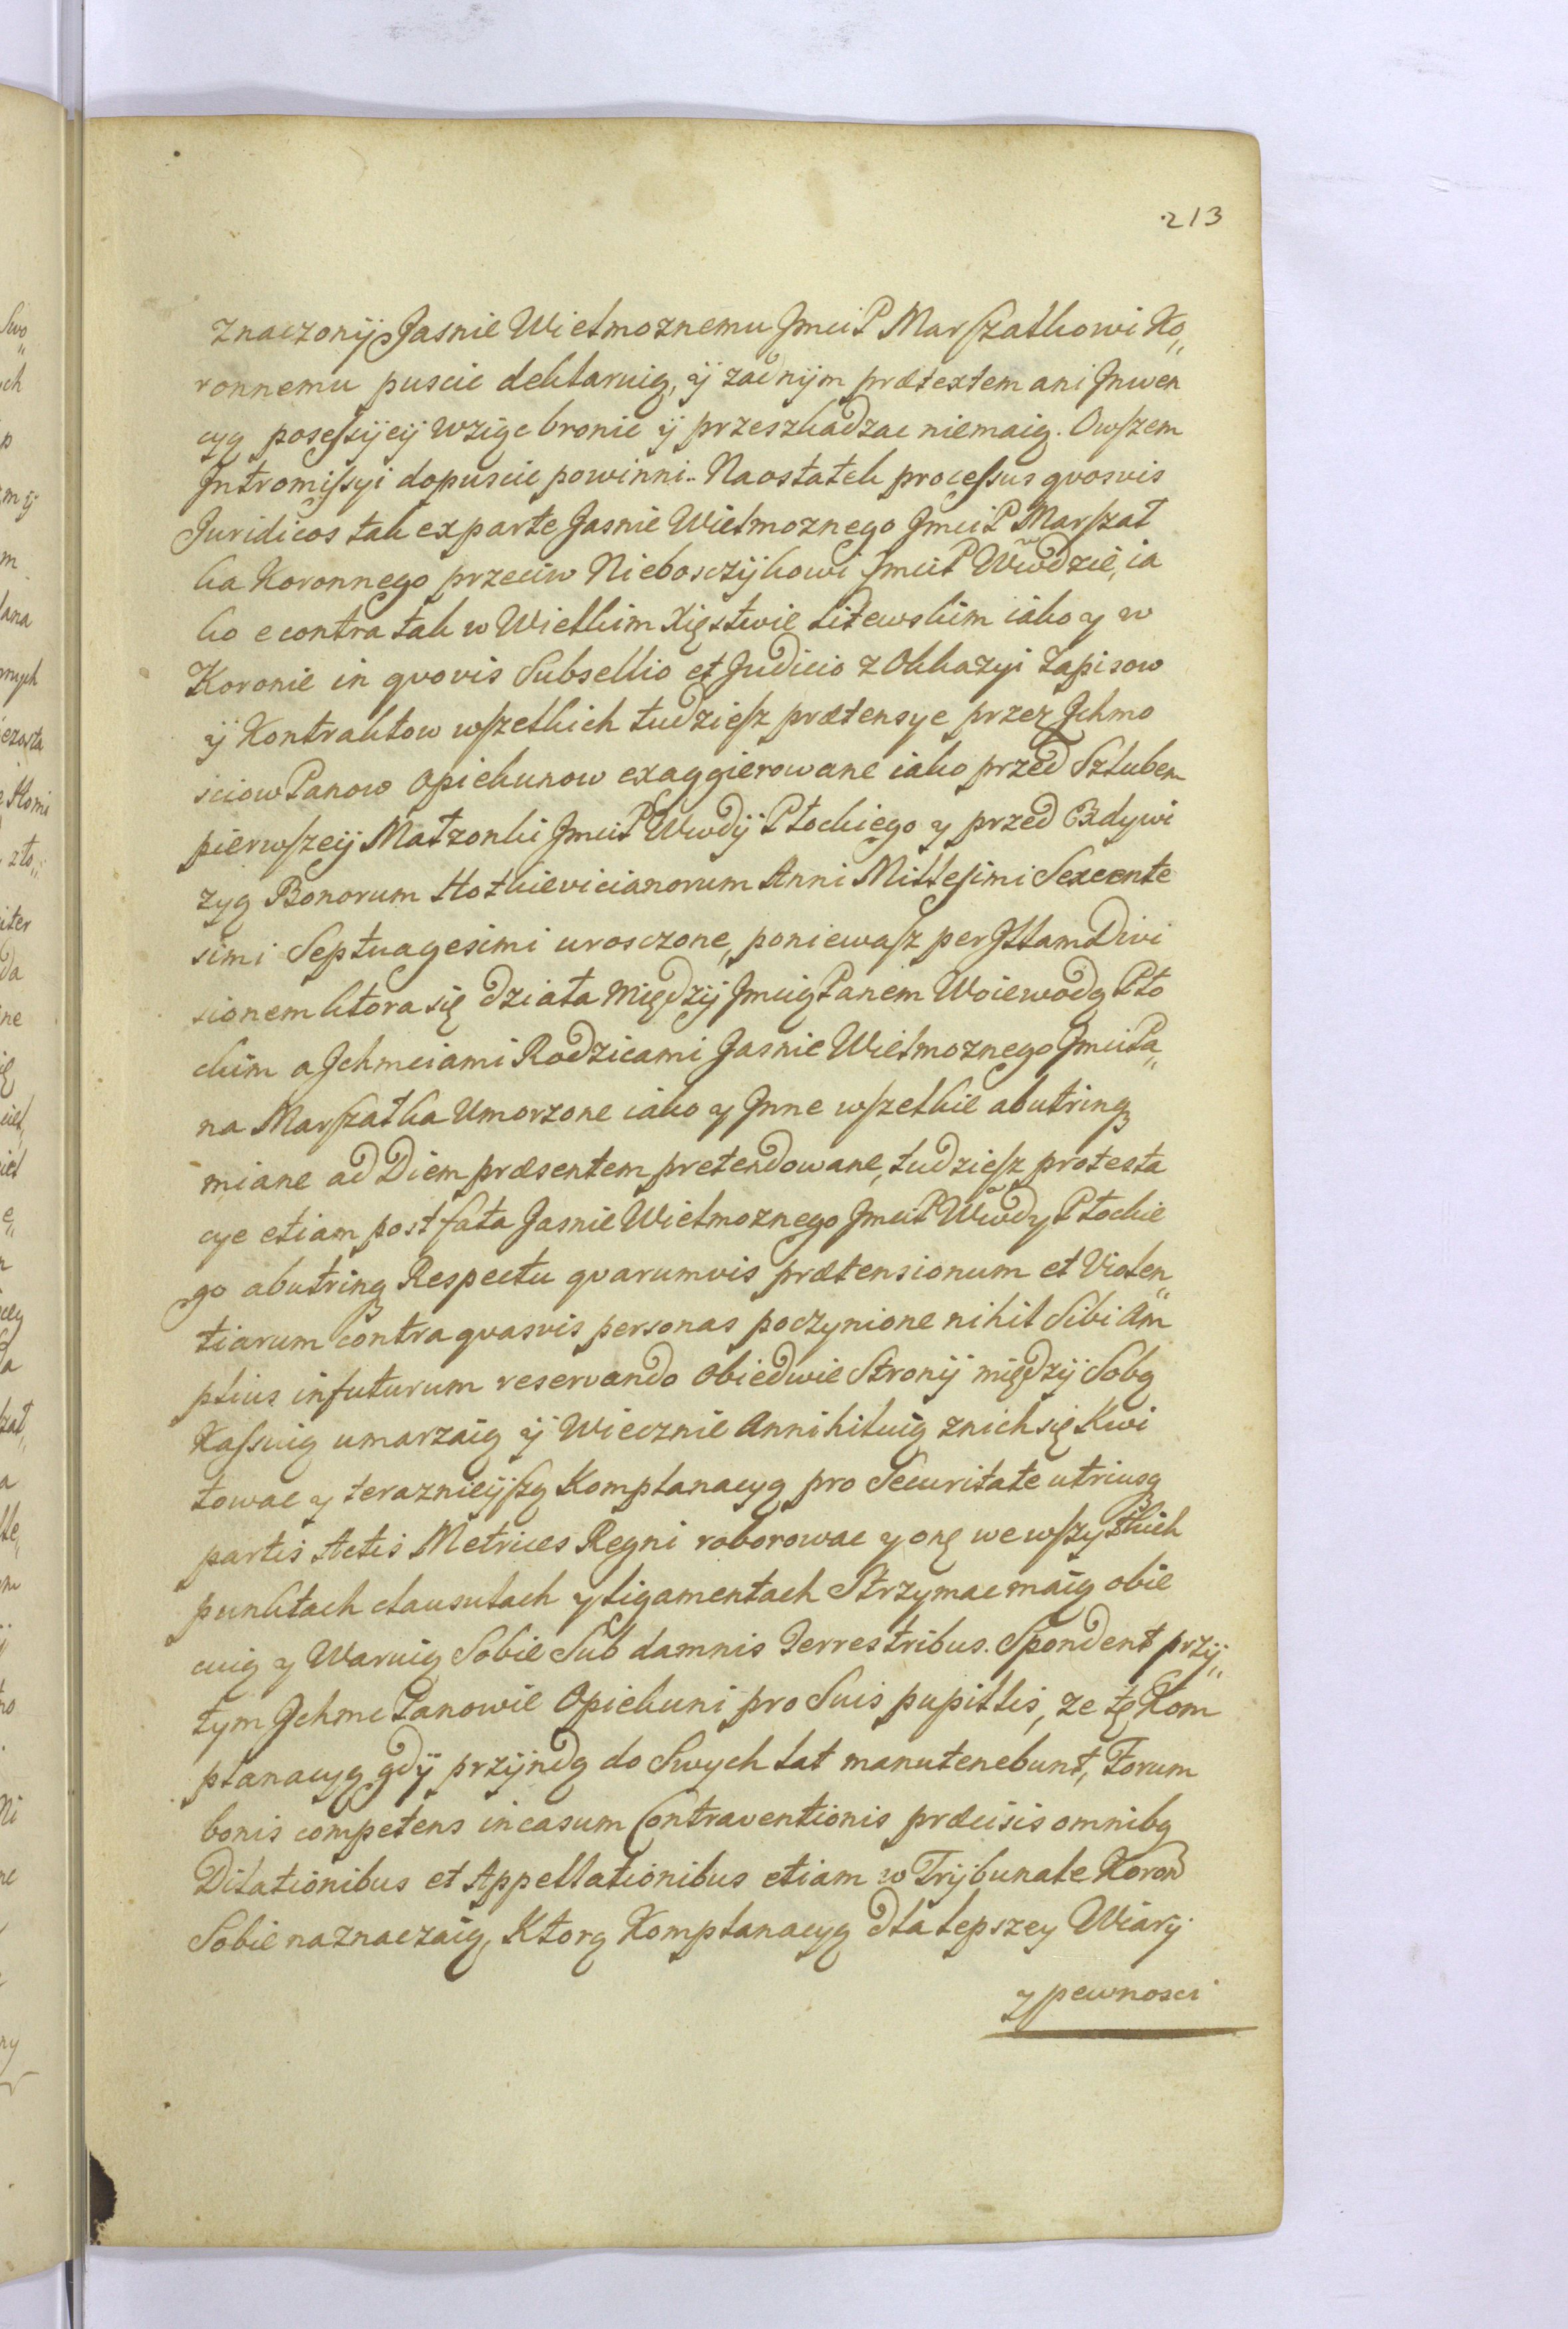 213
znaczonÿ Jasnie Wielmoznemu Jmci P Marszałkowi Ko„
ronnemu puscic deklaruią, ÿ zadnÿm prætextem ani Inwen
cyą posessÿeÿ wziąc bronic ÿ przeszkadzac niemaią. Owszem
Intromissyi dopuscic powinni. Naostatek processus qvosvis
Juridicos tak exparte Jasnie Wielmoznego Jmci P Marszał
ka Koronnego przeciw Nieboszczÿkowi Jmci P Wwdzie, ia
ko econtra tak w Wielkim Xięstwie Litewskim iako y w
Koronie in qvovis Subsellio et Judicio z Okkazyi Zapisow
ÿ Kontraktow wszelkich tudziesz prætensye przez Ichmo
sciow Panow Opiekunow exaggierowane iako przed Szlubem
pierwszeÿ Małzonki Jmci P Wwdÿ Płockiego y przed Bdywi
zyą Bonorum Hotkievicianorum Anni Millesimi Sexcente
simi Septuagesimi urosczone, poniewasz per Illam Divi
sionem ktora się działa międzÿ Jmcią Panem Woiewodą Pło
ckim a Ichmciami Rodzicami Jasnie Wielmoznego Jmci Pa„
na Marszałka Umorzone iako y Inne wszelkie abutrinq
miane ad Diem præsentem pretendowane, tudziesz protesta
cye etiam post fata Jasnie Wielmoznego Jmci P Wwdy Płockie
go abutrinq Respectu qvarumvis prætensionum et Violen„
tiarum contra qvasvis personas poczynione nihil Sibi Am
plius infuturum reservando obiedwie Stronÿ międzÿ Sobą
Kassuią umarzaią ÿ Wiecznie Annihiluią znich się Kwi
towac y teraznieÿszą Komplanacyą pro Securitate utriusq
partis Actis Metrices Regni roborowac y onę wewszystkich
punktach clausulach y ligamentach Strzymac maią obie
cuią y Waruią Sobie Sub damnis Terrestribus. Spondent przÿ„
tym Ichmc Panowie Opiekuni pro Suis pupillis, ze tę Kom
planacyą gdÿ przÿndą do Swych lat manutenebunt, Forum
bonis competens incasum Contraventionis præcisis omnibq
Dilationibus et Appellationibus etiam w Trÿbunale Koron
Sobie naznaczaią, Ktorą Komplanacyą dla lepszey Wiarÿ
y pewnosci